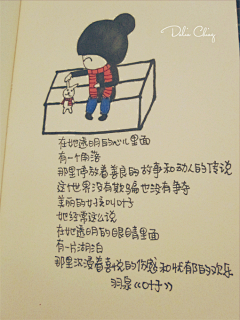 Delia Chény
在她透明的心儿里面
有一个角落
那里停放着善良的故事和动人的传说
这世界没有欺骗也没有争夺
美丽的女孩叫叶子
她经常这么说
在她透明的眼睛里面
有一片湖泊
那里沉浸着喜悦的伤感和忧郁的欢乐
羽泉《叶子》